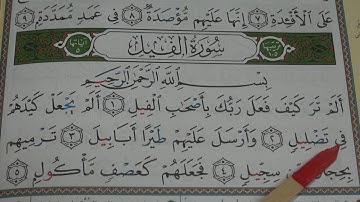 عَلَى الْأَفْئِدَةِ ٧ إِنَّهَا عَلَيْهِم مُّؤْصَدَةٌ ٨ فِي عَمَدٍ مُّمَدَّدَةٍ ٩
سُورَةُ الْفِيلِ
بِسْمِ اللَّهِ الرَّحْمَٰنِ الرَّحِيمِ
أَلَمْ تَرَ كَيْفَ فَعَلَ رَبُّكَ بِأَصْحَابِ الْفِيلِ ١ أَلَمْ يَجْعَلْ كَيْدَهُمْ
فِي تَضْلِيلٍ ٢ وَأَرْسَلَ عَلَيْهِمْ طَيْرًا أَبَابِيلَ ٣ تَرْمِيهِم
بِحِجَارَةٍ مِّن سِجِّيلٍ ٤ فَجَعَلَهُمْ كَعَصْفٍ مَّأْكُولٍ ٥